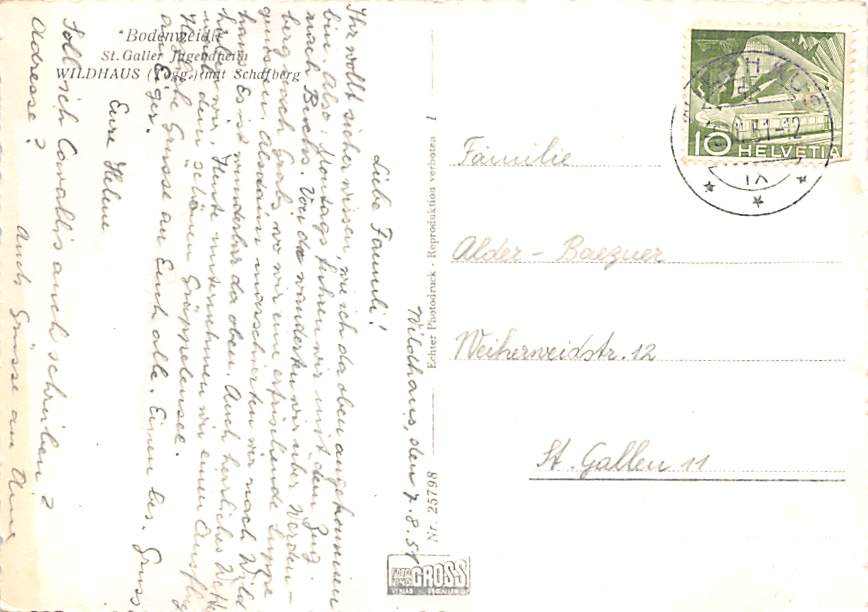 "Bodenweidli"
St. Galler Jugendheim
WILDHAUS (Togg.) mit Schafberg
Wildhaus, den 7.8.51
Liebe Famili!
Ihr wollt sicher wissen, wie ich da oben angekommen
bin. Also: Montags fuhren wir mit dem Zug
nach Buchs. Von da wanderten wir über Werden-
berg nach Grabs, wo wir eine erfrischende Suppe
genossen. Alsdann marschierten wir nach Wild
haus. Es ist wunderbar da oben. Auch herrliches Wetter
haben wir. Heute unternehmen wir einen Ausflug
an den schönen Gräppelensee.
Herzliche Grüsse an Euch alle. Einen bes. Gruss
an Elger.
Eure Helene
Soll ich Cavallis auch schreiben?
Adresse?
Auch Grüsse an
Echter Photodruck - Reproduktion verboten
Nr. 25798
FOTO
GROSS
Familie
Alder - Baezner
Weiherweidstr. 12
St. Gallen 11
WILDHAUS
51-12
IX
10 HELVETIA